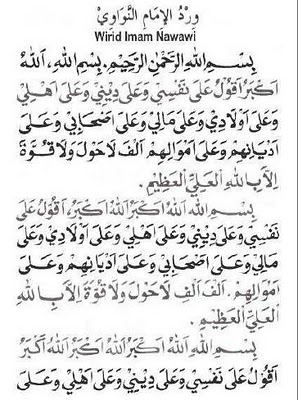 وِرْدُ الْإِمَامِ النَّوَاوِيْ
Wirid Imam Nawawi
بِسْمِ اللهِ الرَّحْمٰنِ الرَّحِيْمِ. بِسْمِ اللهِ، اَللهُ
اَكْبَرُ اَقُوْلُ عَلَى نَفْسِيْ وَعَلَى دِيْنِيْ وَعَلَى اَهْلِيْ
وَعَلَى اَوْلَادِيْ وَعَلَى مَالِيْ وَعَلَى اَصْحَابِيْ وَعَلَى
اَدْيَانِهِمْ وَعَلَى اَمْوَالِهِمْ اَلْفَ لَاحَوْلَ وَلَا قُوَّةَ
اِلَّا بِاللهِ الْعَلِيِّ الْعَظِيْمِ.
بِسْمِ اللهِ اَللهُ اَكْبَرُ اَللهُ اَكْبَرُ، اَقُوْلُ عَلَى
نَفْسِيْ وَعَلَى دِيْنِيْ وَعَلَى اَهْلِيْ وَعَلَى اَوْلَادِيْ وَعَلَى
مَالِيْ وَعَلَى اَصْحَابِيْ وَعَلَى اَدْيَانِهِمْ وَعَلَى
اَمْوَالِهِمْ. اَلْفَ اَلْفِ لَاحَوْلَ وَلَا قُوَّةَ اِلَّا بِاللهِ
الْعَلِيِّ الْعَظِيْمِ.
بِسْمِ اللهِ اَللهُ اَكْبَرُ اَللهُ اَكْبَرُ اَللهُ اَكْبَرُ
اَقُوْلُ عَلَى نَفْسِيْ وَعَلَى دِيْنِيْ وَعَلَى اَهْلِيْ وَعَلَى